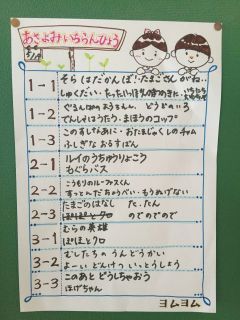 あさよみいちらんひょう
1-1 そらはだかんぼ!・たまごさんがね…
しゅくだい・
1-2 ぐるんぱのようちえん どうぞのいす
でんしゃはうたう・まほうのコップ
1-3 このすしなあに・おたまじゃくしのチャム
ふしぎなおるすばん
2-1 ルイのうちゅうりょこう
もぐらバス
2-2 こうもりのルーファスくん
すっとんだちょうべい・もうぬげない
2-3 たまごのはなし だ・だん
のでのでので
3-1 むらの英雄
ぽぽとクロ
3-2 むしたちのうんどうかい
よーいどんけついっとうしょう
3-3 このあとどうしちゃおう
ほげちゃん
ヨムヨム